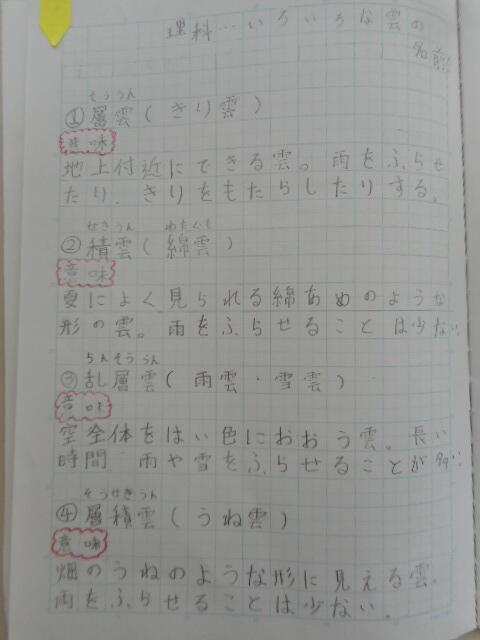 理科…いろいろな雲の
名前
そううん
①層雲(きり雲)
意味
地上付近にできる雲。雨をふらせ
たり、きりをもたらしたりする。
せきうん わたぐも
②積雲(綿雲)
意味
夏によく見られる綿あめのような
形の雲。雨をふらせることは少ない。
らんそううん
③乱層雲(雨雲・雪雲)
意味
空全体をはい色におおう雲。長い
時間、雨や雪をふらせることが多い。
そうせきうん
④層積雲(うね雲)
意味
畑のうねのような形に見える雲。
雨をふらせることは少ない。